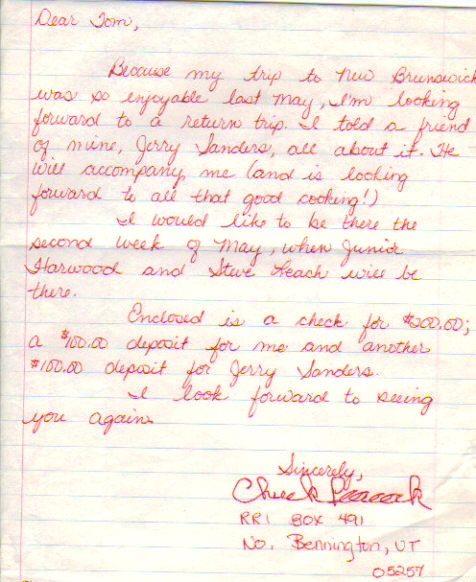 Dear Tom,
Because my trip to New Brunswick
was so enjoyable last May, I'm looking
forward to a return trip. I told a friend
of mine, Jerry Sanders, all about it. He
will accompany me (and is looking
forward to all that good cooking!)
I would like to be there the
second week of May, when Junior
Harwood and Steve Heach will be
there.
Enclosed is a check for $200.00;
a $100.00 deposit for me and another
$100.00 deposit for Jerry Sanders.
I look forward to seeing
you again.
Sincerely,
Chuck
RR1 BOX 491
No. Bennington, VT
05257